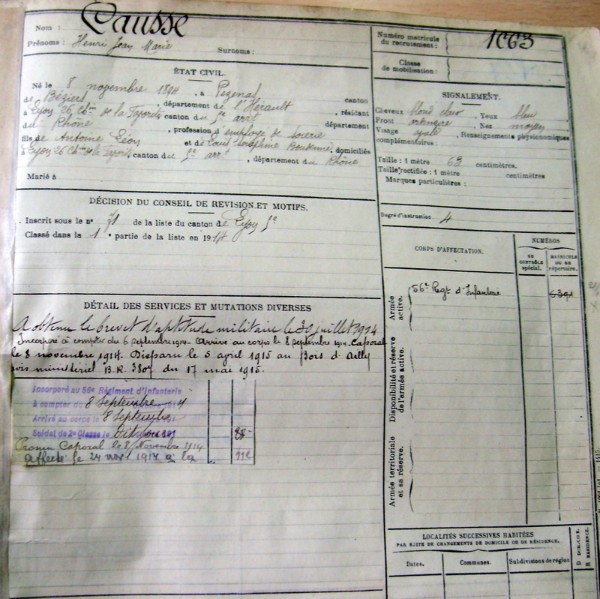 Nom : Causse
Prénoms : Henri Jean Marie Surnoms :
Numéro matricule du recrutement : 1663
Classe de mobilisation :
ÉTAT CIVIL.
Né le 8 novembre 1894, à Pézenas, canton
de Béziers, département de l'Hérault, résidant
à Lyon 26 Ch. de la Favorite canton du 5e arrt, département
du Rhône, profession d'employé de soierie
fils de Antoine Léon et de Joséphine, domiciliés
à Lyon 26 Ch. de la Favorite canton du 5e arrt, département du Rhône
Marié à
SIGNALEMENT.
Cheveux blond clair. Yeux bleu
Front ordinaire. Nez moyen
Visage ovale. Renseignements physionomiques
complémentaires :
Taille : 1 mètre 63 centimètres.
Taille rectifiée : 1 mètre centimètres.
Marques particulières :
DÉCISION DU CONSEIL DE REVISION ET MOTIFS.
Inscrit sous le no 71 de la liste du canton de Lyon 5e
Classé dans la 1e partie de la liste en 1914
Degré d'instruction : 4
CORPS D'AFFECTATION.
NUMÉROS
DE CONTRÔLE spécial.
MATRICULE OU DE répertoire.
Armée active.
56e Régt d'Infanterie
Disponibilité et réserve de l'armée active.
Armée territoriale et sa réserve.
DÉTAIL DES SERVICES ET MUTATIONS DIVERSES
A obtenu le brevet d'aptitude militaire le 30 juillet 1914
Incorporé à compter du 6 septembre 1914. Arrivé au corps le 8 septembre 1914. Caporal
le 8 novembre 1914. Disparu le 5 avril 1915 au Bois d'Ailly
avis ministériel B.R. du 17 mai 1915.
Incorporé au 56e Régiment d'Infanterie
à compter du 8 Septembre 1914
Arrivé au corps le 8 Septembre
Soldat de 2e Classe le
Promu Caporal le 8 Novembre 1914
Affecté le 24 1914 à la
LOCALITÉS SUCCESSIVES HABITÉES
PAR SUITE DE CHANGEMENTS DE DOMICILE OU DE RÉSIDENCE.
Dates. Communes Subdivisions de région
D DOMICILE.
R RÉSIDENCE.